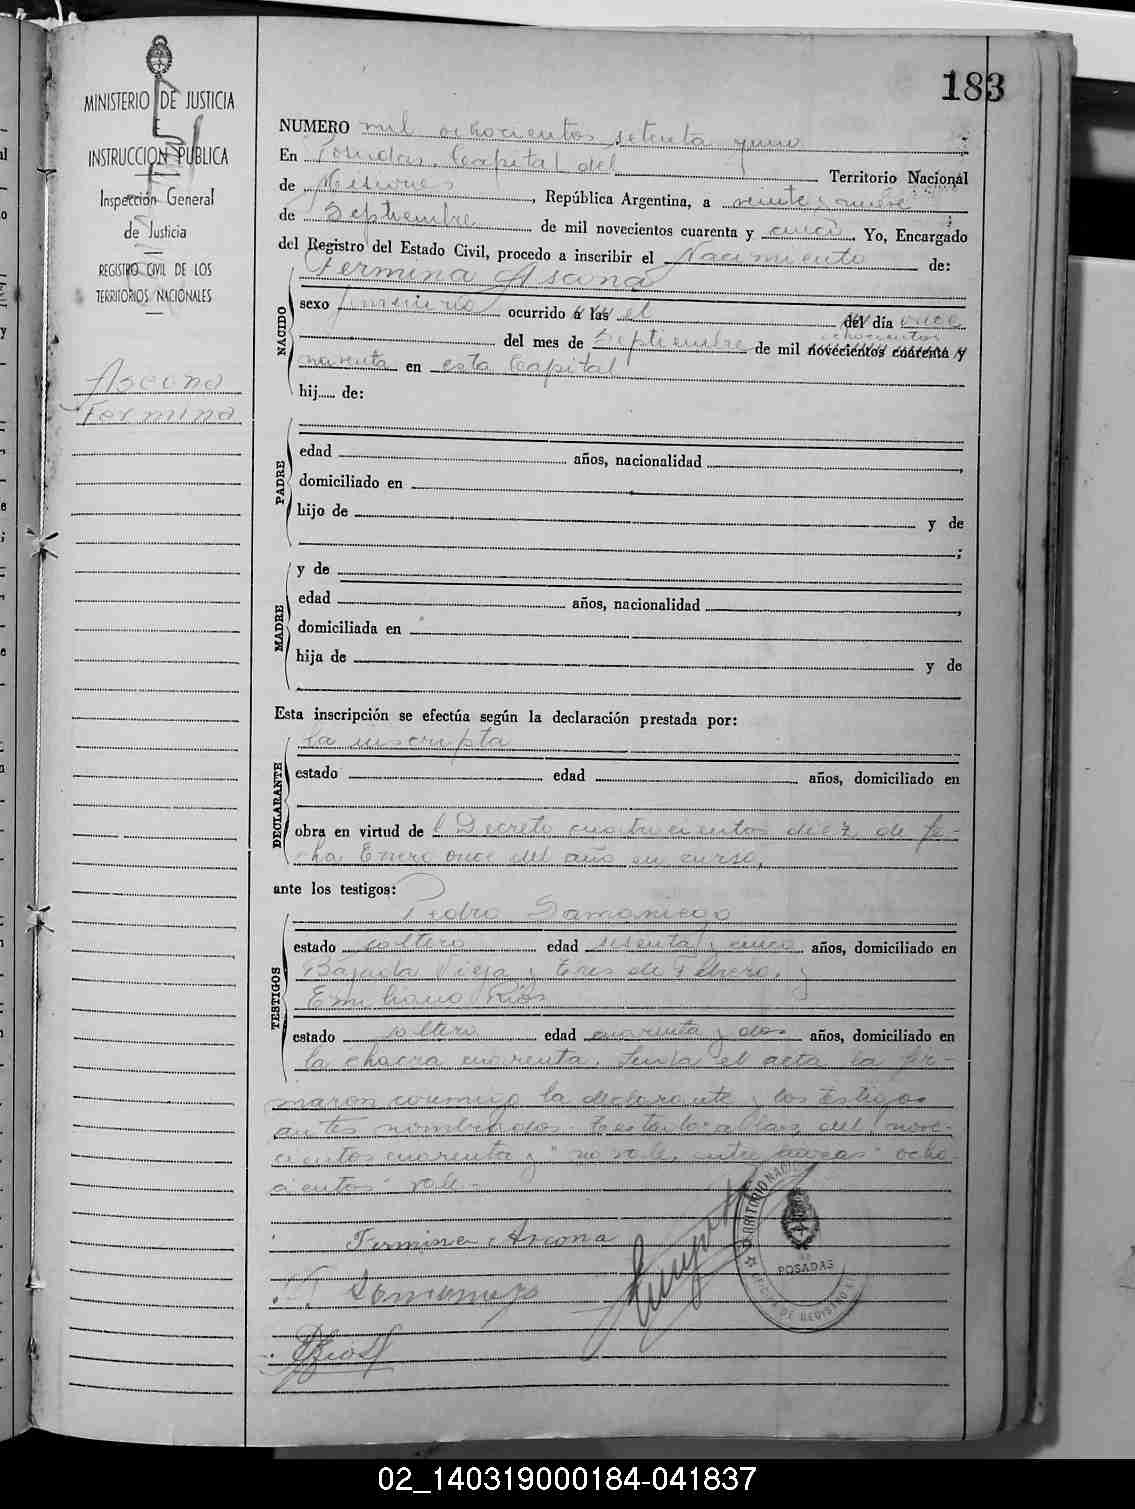 183
MINISTERIO DE JUSTICIA
E
INSTRUCCION PUBLICA
Inspección General
de Justicia
REGISTRO CIVIL DE LOS
TERRITORIOS NACIONALES
Ascona
Fermina
NUMERO mil ochocientos setenta y uno
En Posadas, Capital del Territorio Nacional
de Misiones, República Argentina, a veinte y nueve
de Septiembre de mil novecientos cuarenta y cinco. Yo, Encargado
del Registro del Estado Civil, procedo a inscribir el Nacimiento de:
Fermina Ascona
NACIDO
sexo femenino ocurrido á las el del día once
ochocientos
del mes de Septiembre de mil novecientos cuarenta y
noventa en esta Capital
hij..... de:
PADRE
edad años, nacionalidad ,
domiciliado en
hijo de y de
;
MADRE
y de
edad años, nacionalidad ,
domiciliada en
hija de y de
Esta inscripción se efectúa según la declaración prestada por:
DECLARANTE
la inscripta
estado edad años, domiciliado en
obra en virtud del Decreto cuatrocientos diez de fe-
cha Enero once del año en curso,
ante los testigos:
TESTIGOS
Pedro Samaniego
estado soltero edad sesenta y cinco años, domiciliado en
Bajada Vieja y Tres de Febrero, y
Emiliano Ríos
estado soltero edad cuarenta y dos años, domiciliado en
la chacra cuarenta. Leída el acta la fir-
maron conmigo la declarante y los testigos
antes nombrados. Testado: a las, del, nove-
cientos cuarenta y "no vale, entre líneas" ocho-
cientos" vale.-
Fermina Ascona
Samaniego
Rios
TERRITORIO NACIONAL
POSADAS
DE REGISTRO
02_140319000184-041837